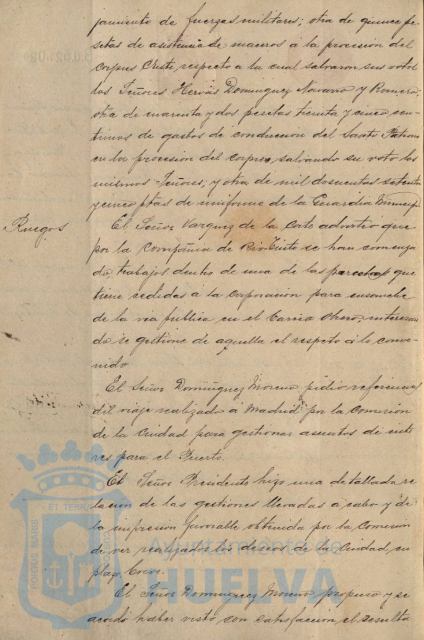 jamiento de fuerzas militares; otra de quince pe-
setas de asistencia de maceros á la procesion del
Corpus Cristi, respecto a la cual salvaron sus votos
los Señores Hervás Dominguez Navarro y Romero;
otra de cuarenta y dos pesetas treinta y cinco cen-
timos de gastos de conduccion del Santo Patrono
en la procesion del Corpus, salvando su voto los
mismos Señores; y otra de mil doscientas setenta
y cinco ptas de uniforme de la Guardia Municipal
Ruegos
El Señor Vazquez de la Corte advirtió que
por la Compañia de Rio-Tinto se han comenza-
do trabajos dentro de una de las parcelas que
tiene cedidas á la Corporacion para ensanche
de la via publica en el Barrio Obrero, interesan-
do se gestione de aquella el respeto á lo conve-
nido
El Señor Domínguez Moreno, pidio referencias
del viaje realizado á Madrid por la Comision
de la Ciudad para gestionar asuntos de inte-
res para el Puerto.
El Señor Presidente hizo una detallada re-
lacion de las gestiones llevadas á cabo y de
la impresion favorable obtenida por la Comision
de ver realizados los deseos de la Ciudad, en
plazo corto.
El Señor Dominguez Moreno propuso y se
acordó haber visto con satisfaccion el resulta
PORTUS MARIS ET TERRAE CUSTODIA
Ayuntamiento de
HUELVA